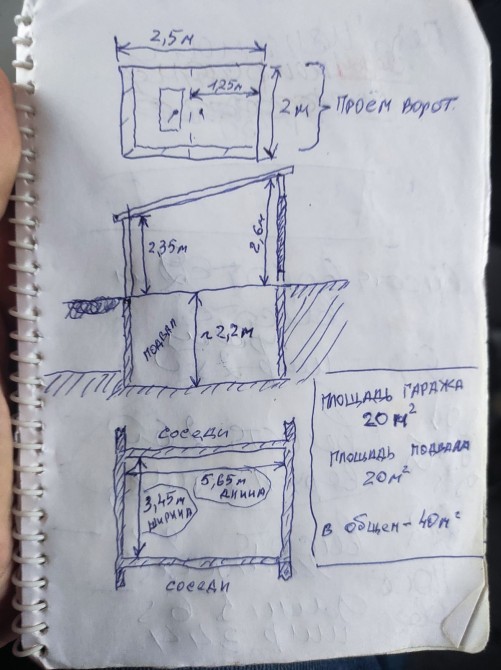 2,5м
1,25м
2м
ПРОЕМ ВОРОТ.
2,35м
2,6м
ПОДВАЛ
~2,2м
ПЛОЩАДЬ ГАРАЖА
20м²
ПЛОЩАДЬ ПОДВАЛА
20м²
В ОБЩЕМ - 40м²
СОСЕДИ
5,65м
ДЛИНА
3,45м
ШИРИНА
СОСЕДИ